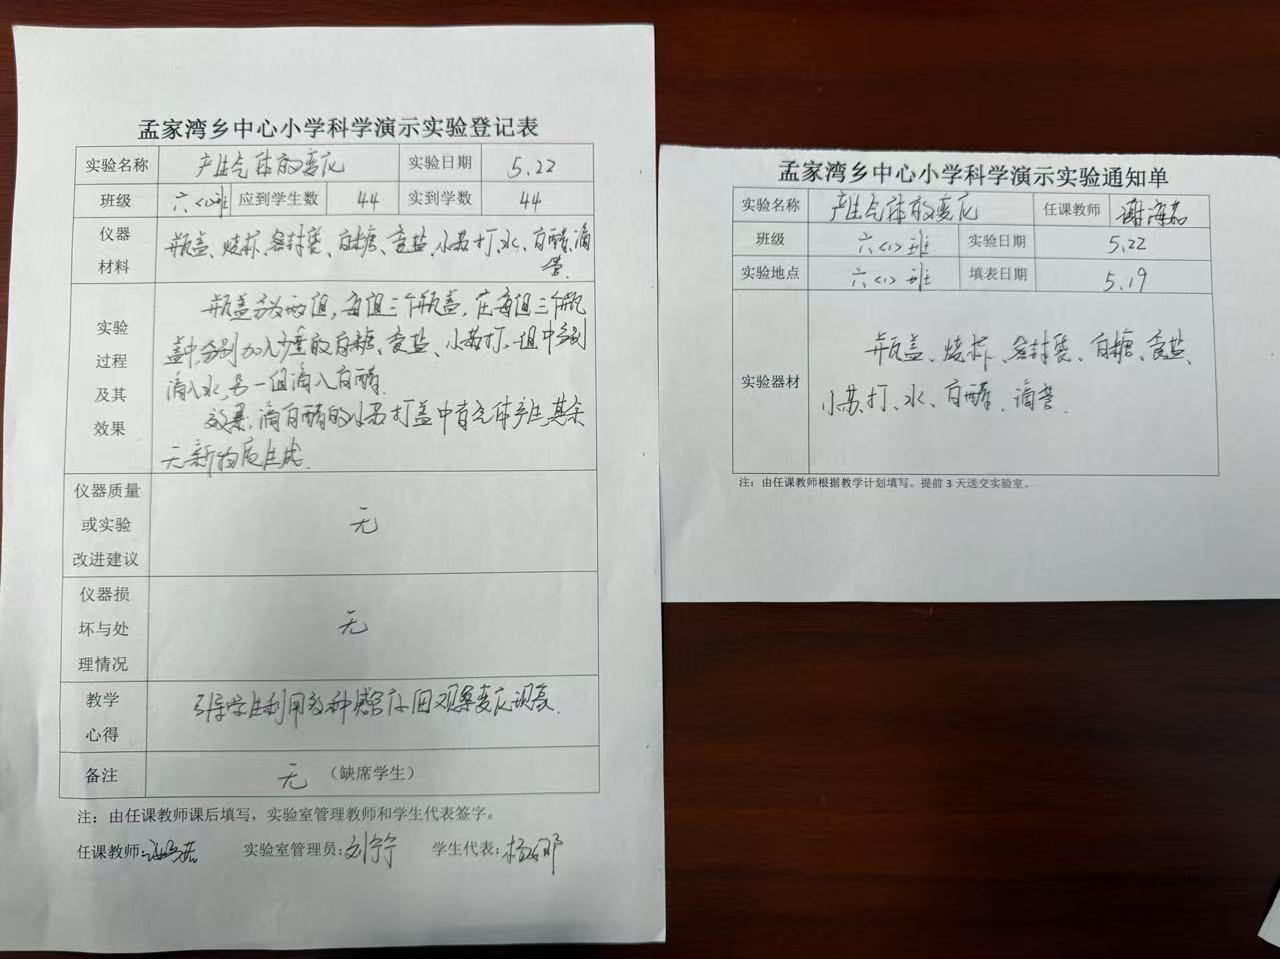 孟家湾乡中心小学科学演示实验登记表
实验名称 产生气体的变化 实验日期 5.22
班级 六<1>班 应到学生数 44 实到学数 44
仪器材料 瓶盖、烧杯、密封袋、白糖、食盐、小苏打、水、白醋、滴管.
实验过程及其效果
瓶盖分为两组，每组三个瓶盖，在每组三个瓶
盖中分别加入少量的白糖、食盐、小苏打.一组中分别
滴入水,另一组滴入白醋.
效果:滴白醋的小苏打盖中有气体产生,其余
无新物质生成.
仪器质量或实验改进建议 无
仪器损坏与处理情况 无
教学心得 引导学生利用多种感官 观察变化现象.
备注 无 （缺席学生）
注：由任课教师课后填写，实验室管理教师和学生代表签字。
任课教师: 实验室管理员: 刘宁宁 学生代表: 杨 那
孟家湾乡中心小学科学演示实验通知单
实验名称 产生气体的变化 任课教师 谢海
班级 六<1>班 实验日期 5.22
实验地点 六<1>班 填表日期 5.19
实验器材 瓶盖、烧杯、密封袋、白糖、食盐、
小苏打、水、白醋、滴管.
注：由任课教师根据教学计划填写。提前 3 天送交实验室。